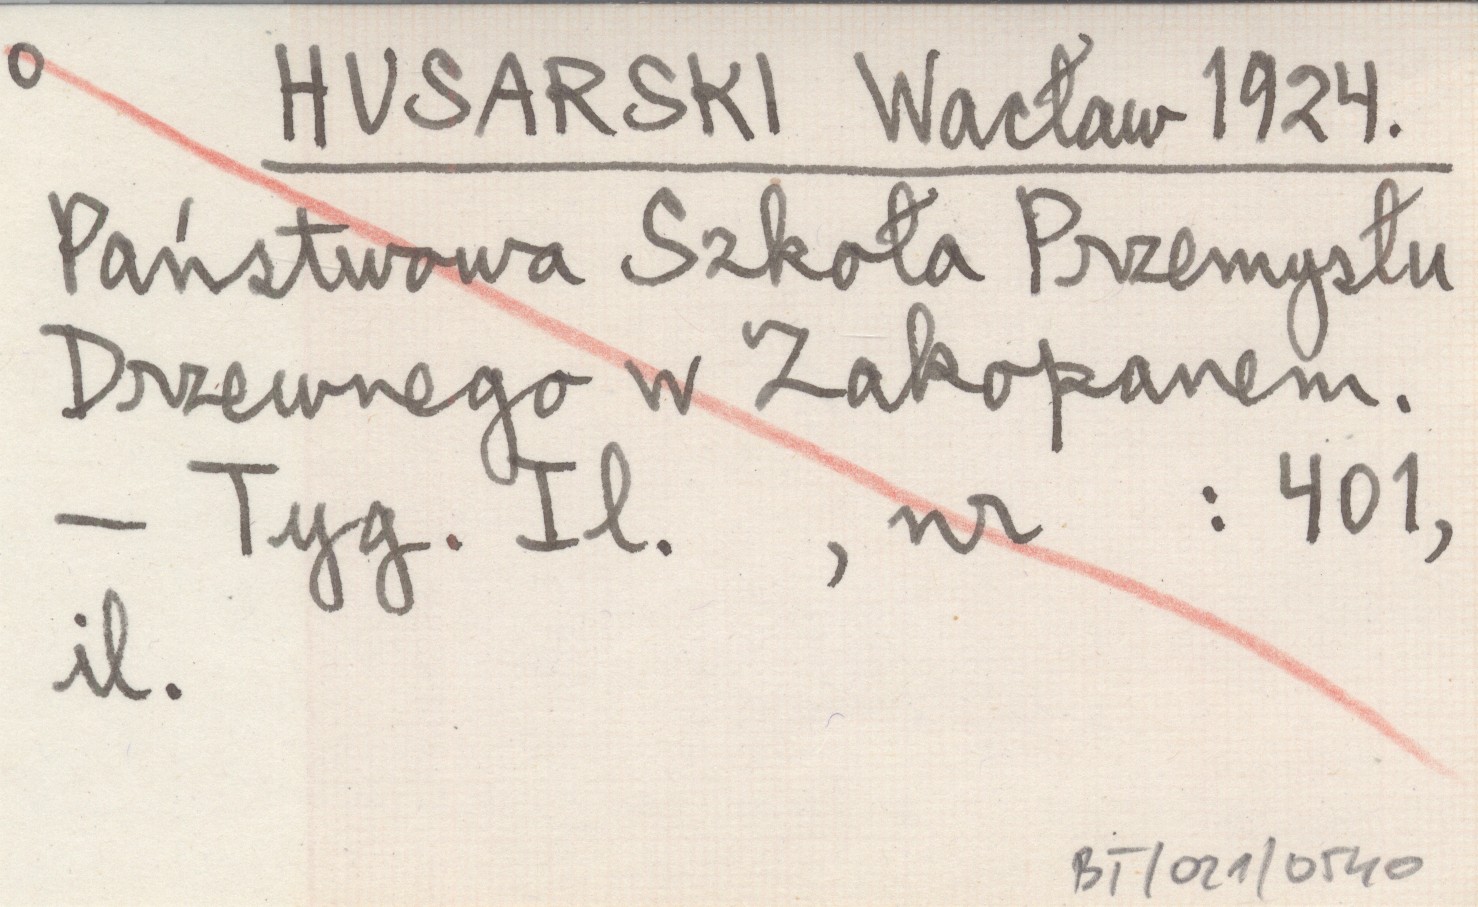 o HUSARSKI Wacław 1924.
Państwowa Szkoła Przemysłu
Drzewnego w Zakopanem.
— Tyg. Il. , nr : 401,
il.
BT/021/0540